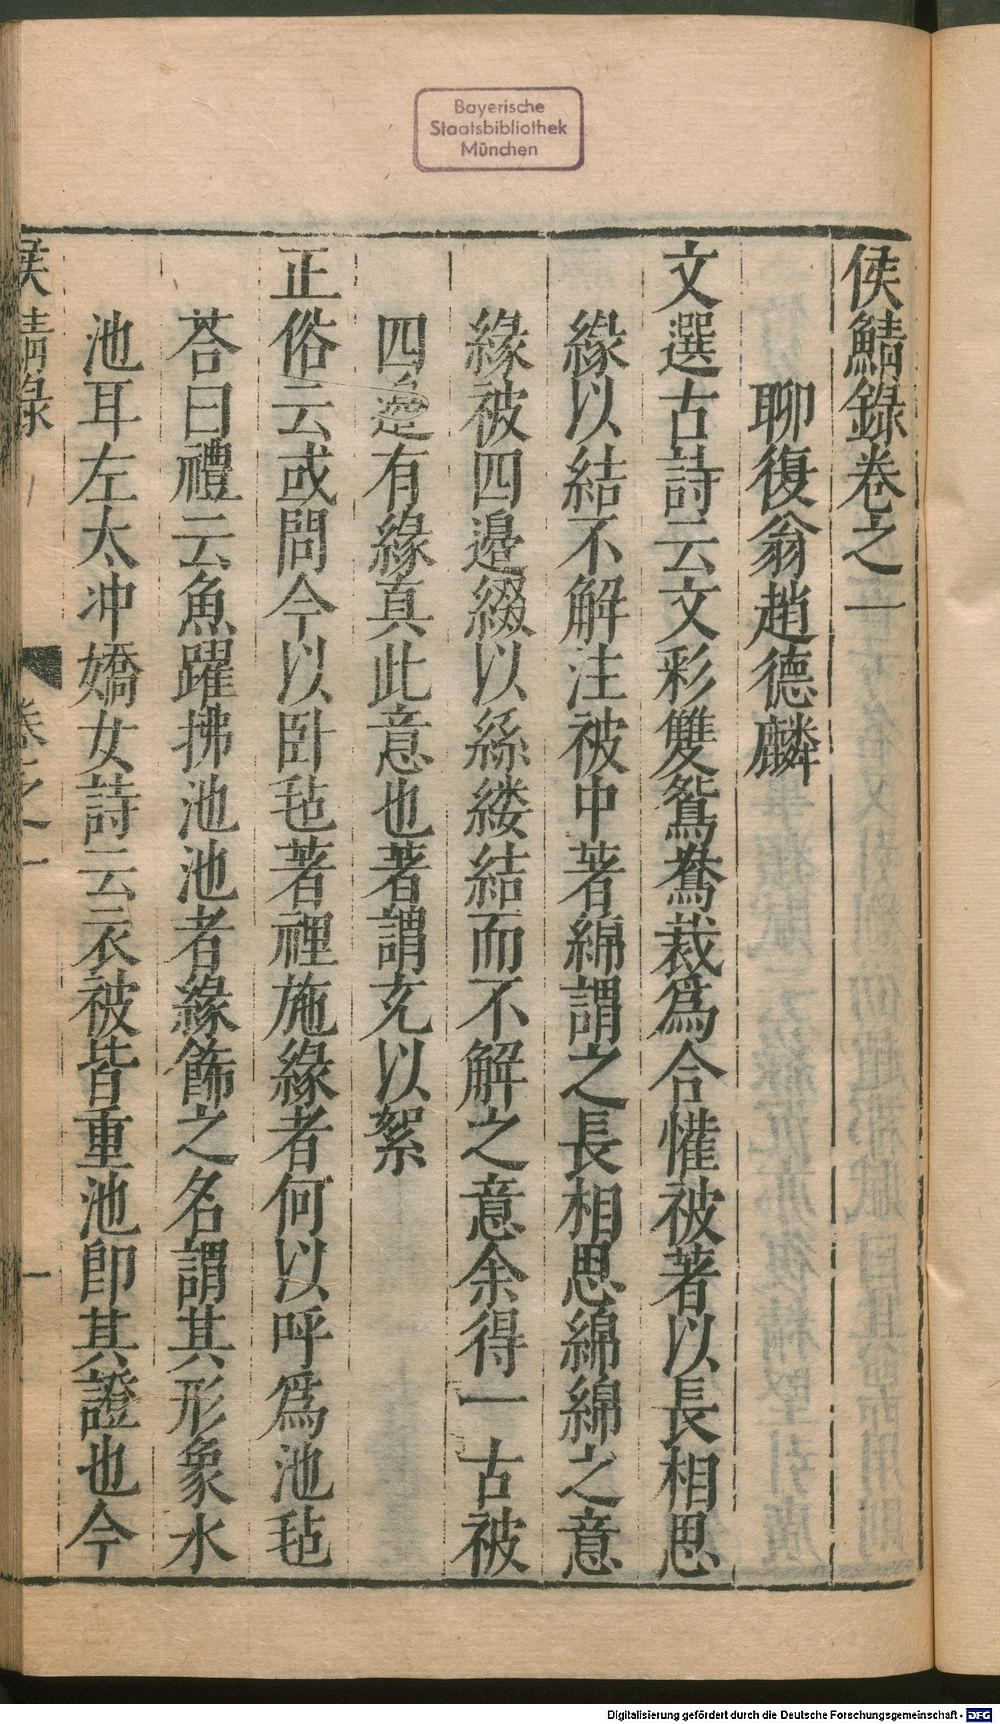 Bayerische
Staatsbibliothek
München
侯鯖錄卷之一
聊復翁趙德麟
文選古詩云文彩雙鴛鴦裁爲合懽被著以長相思
緣以結不解注被中著綿謂之長相思綿綿之意
緣被四邊綴以絲縷結而不解之意余得一古被
四邊有緣真此意也著謂充以絮
正俗云或問今以卧毡著裡施緣者何以呼爲池毡
荅曰禮云魚躍拂池池者緣飾之名謂其形象水
池耳左太冲嬌女詩云衣被皆重池卽其證也今
侯鯖錄
卷之一
一
Digitalisierung gefördert durch die Deutsche Forschungsgemeinschaft - DFG